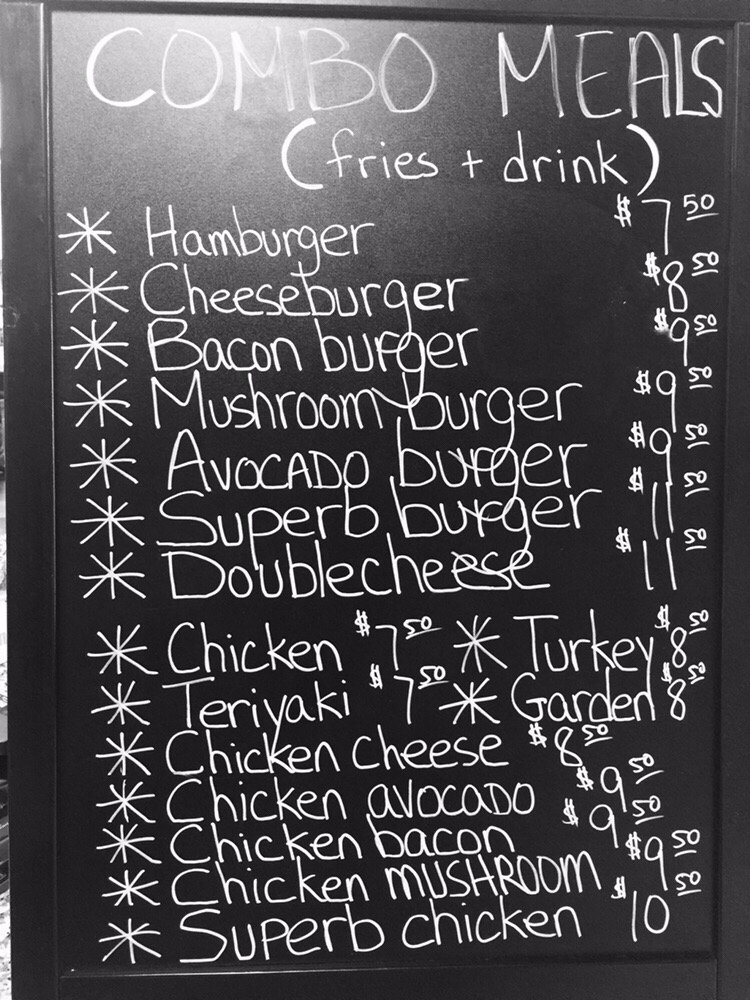 COMBO MEALS
(fries + drink)
* Hamburger $7 50
* Cheeseburger $8 50
* Bacon burger $9 50
* Mushroom burger $9 50
* Avocado burger $9 50
* Superb burger $11 50
* Doublecheese $11 50
* Chicken $7 50 * Turkey $8 50
* Teriyaki $7 50 * Garden $8 50
* Chicken cheese $8 50
* Chicken avocado $9 50
* Chicken bacon $9 50
* Chicken MUSHROOM $9 50
* Superb chicken $10 50